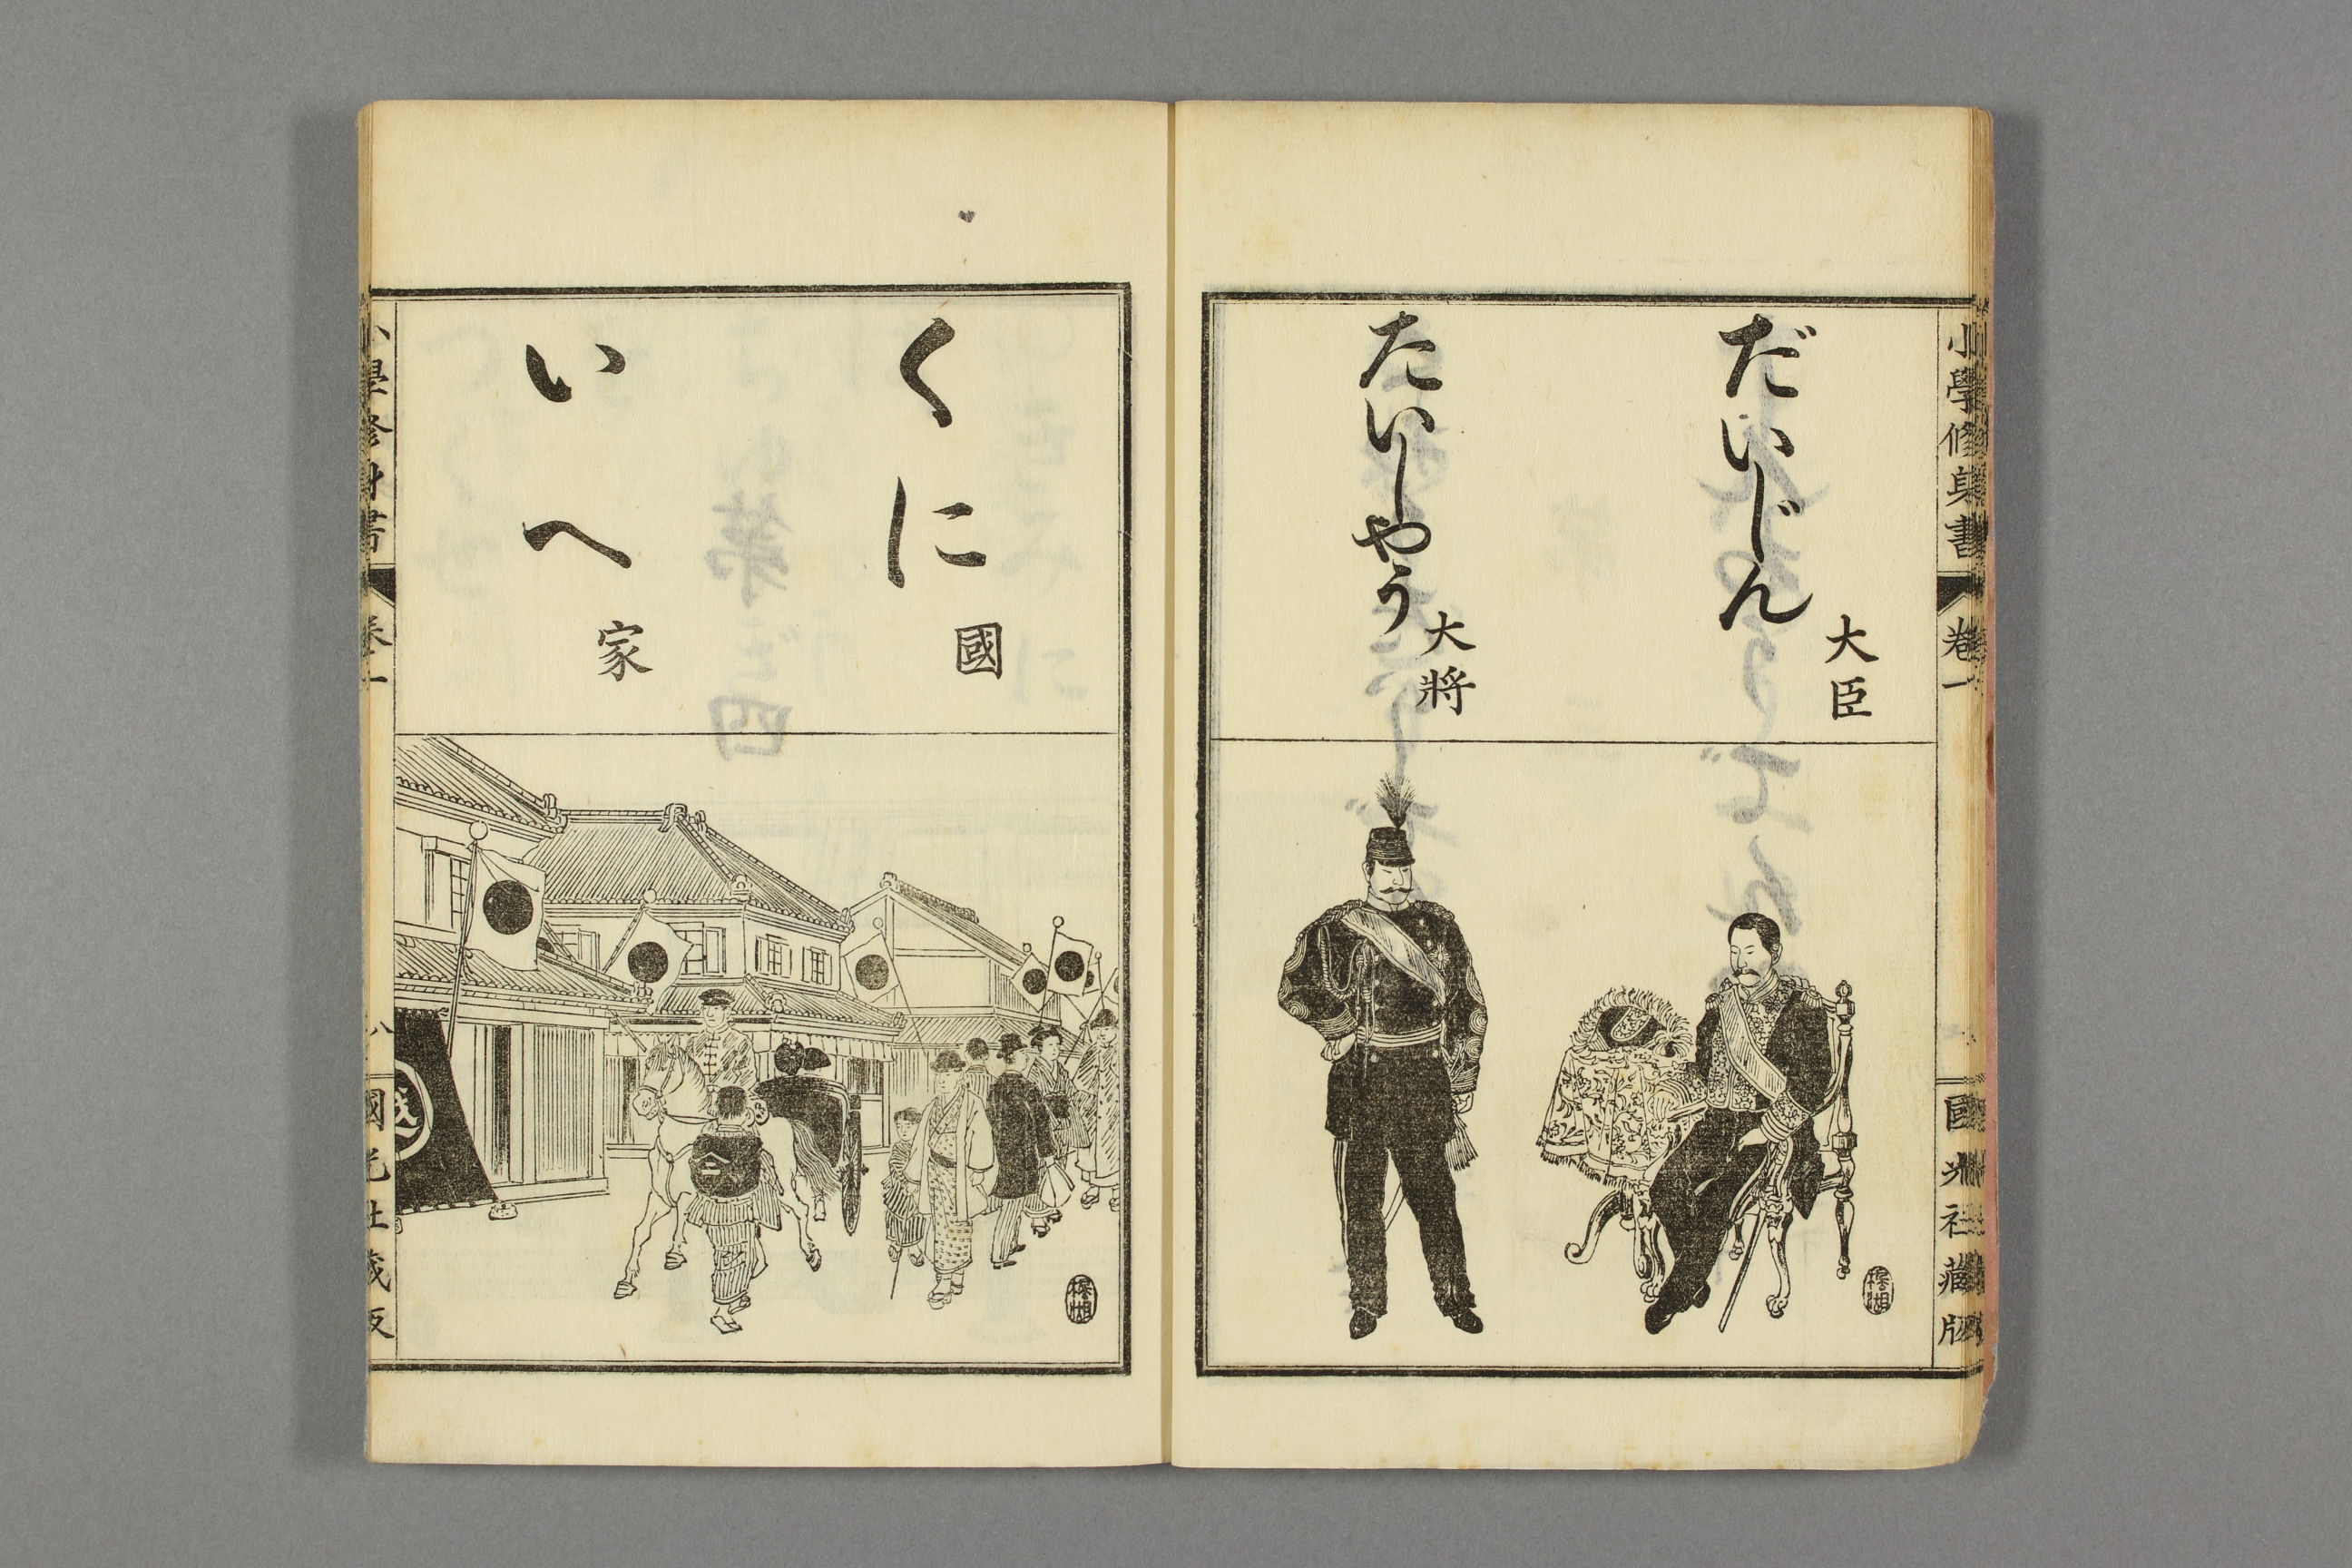 小學修身書 卷一 國光社藏版
だいじん 大臣
たいしやう 大將
くに 國
いへ 家
小學修身書 卷一 八 國光社藏版